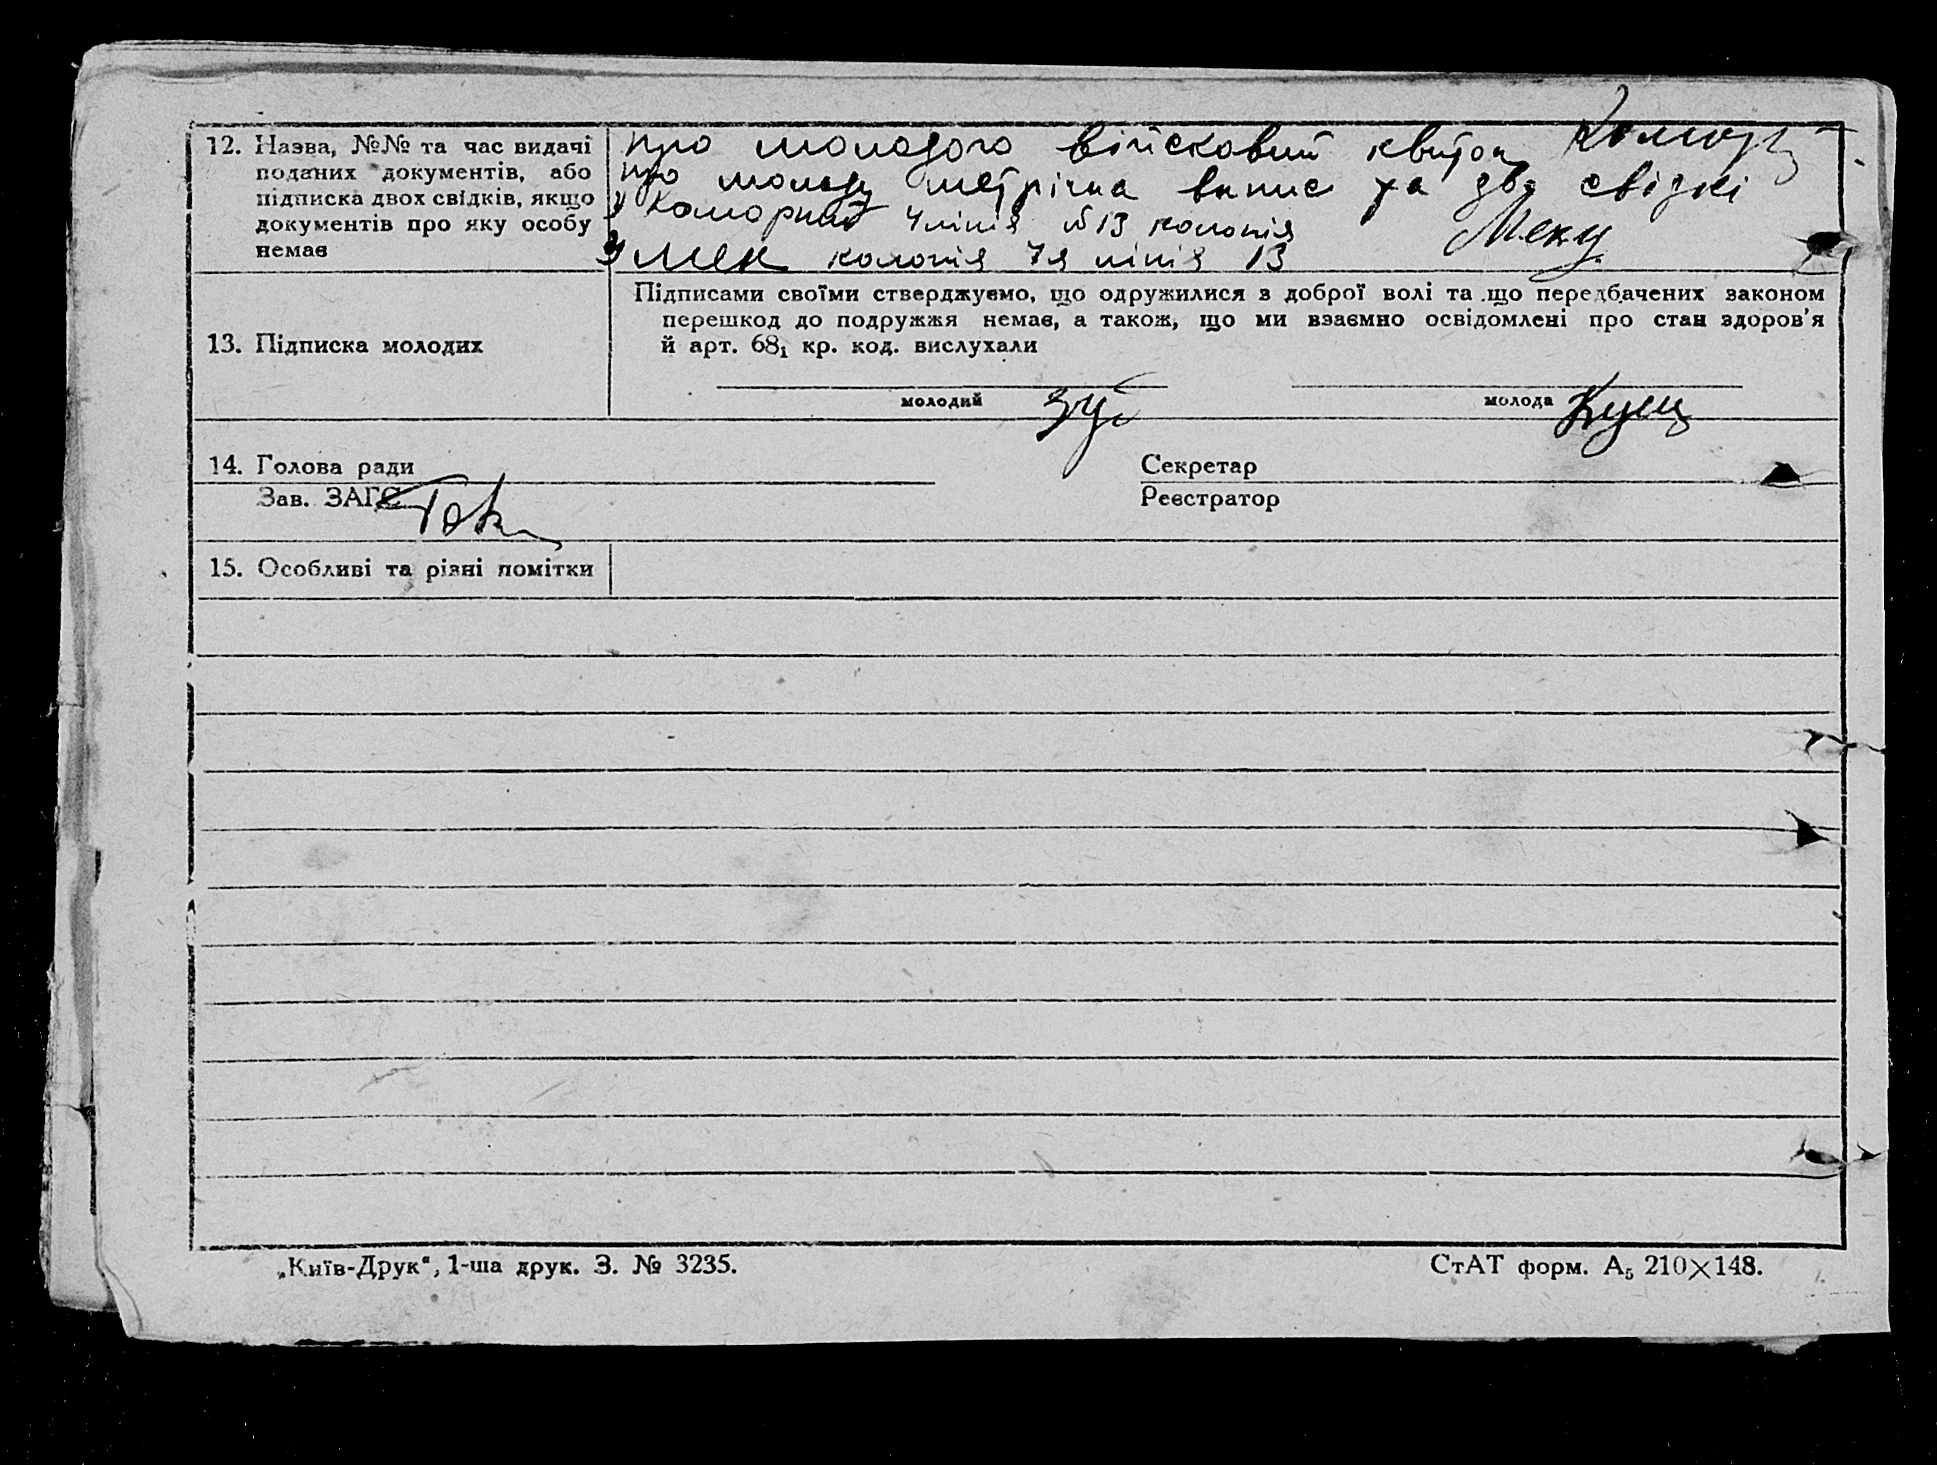 12. Назва, №№ та час видачі
поданих документів, або
підписка двох свідків, якщо
документів про яку особу
немає
про молодого військовий квиток
про молоду метрічна випис та два свідкі
1) Коморний 4 лінія №13 колонія
2) Мек колонія 7я лінія 13
Підписами своїми стверджуємо, що одружилися з доброї волі та що передбачених законом
перешкод до подружжя немає, а також, що ми взаємно освідомлені про стан здоров'я
й арт. 68₁ кр. код. вислухали
13. Підписка молодих
молодий Зуб
молода Кущ
14. Голова ради
Секретар
Зав. ЗАГС
Реєстратор
15. Особливі та різні помітки
„Київ-Друк“, 1-ша друк. З. № 3235.
СтАТ форм. А₅ 210×148.